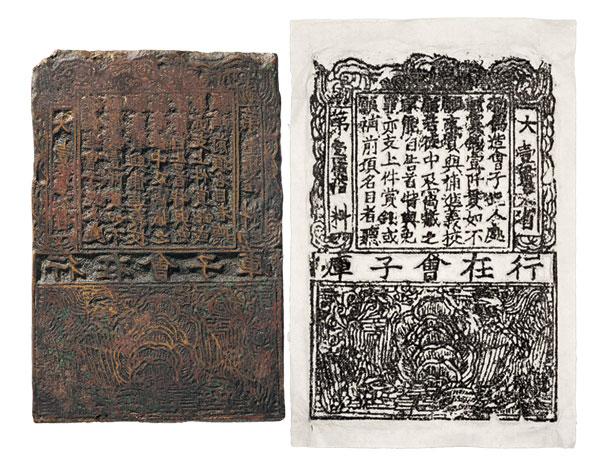 大壹貫文省
敕偽造會子犯人處
斬賞錢壹仟貫如不
願支賞與補進義校
尉若徒中及窩藏之
家能自告首特與免
罪亦支上件賞錢或
願補前項名目者聽
第壹佰拾料
行在會子庫